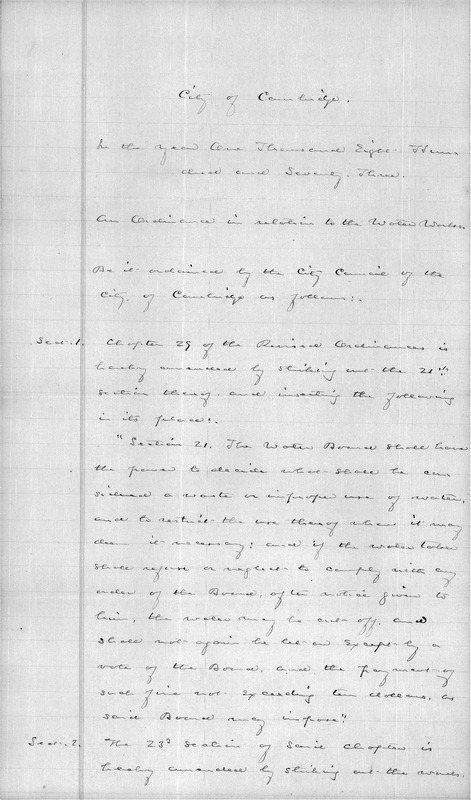 City of Cambridge.
In the year One Thousand Eight Hun-
dred and Seventy Three.
An Ordinance in relation to the Water Works.
Be it ordained by the City Council of the
City of Cambridge as follows:-
Sect. 1. Chapter 29 of the Revised Ordinances is
hereby amended by striking out the 21st
section thereof and inserting the following
in its place:-
"Section 21. The Water Board shall have
the power to decide what shall be con
sidered a waste or improper use of water,
and to restrict the use thereof when it may
deem it necessary; and if the water taker
shall refuse or neglect to comply with any
order of the Board, after notice given to
him, the water may be cut off, and
shall not again be let on except by a
vote of the Board, and the payment of
such fine not exceeding ten dollars, as
said Board may impose."
Sect. 2. The 23d section of said chapter is
hereby amended by striking out the words